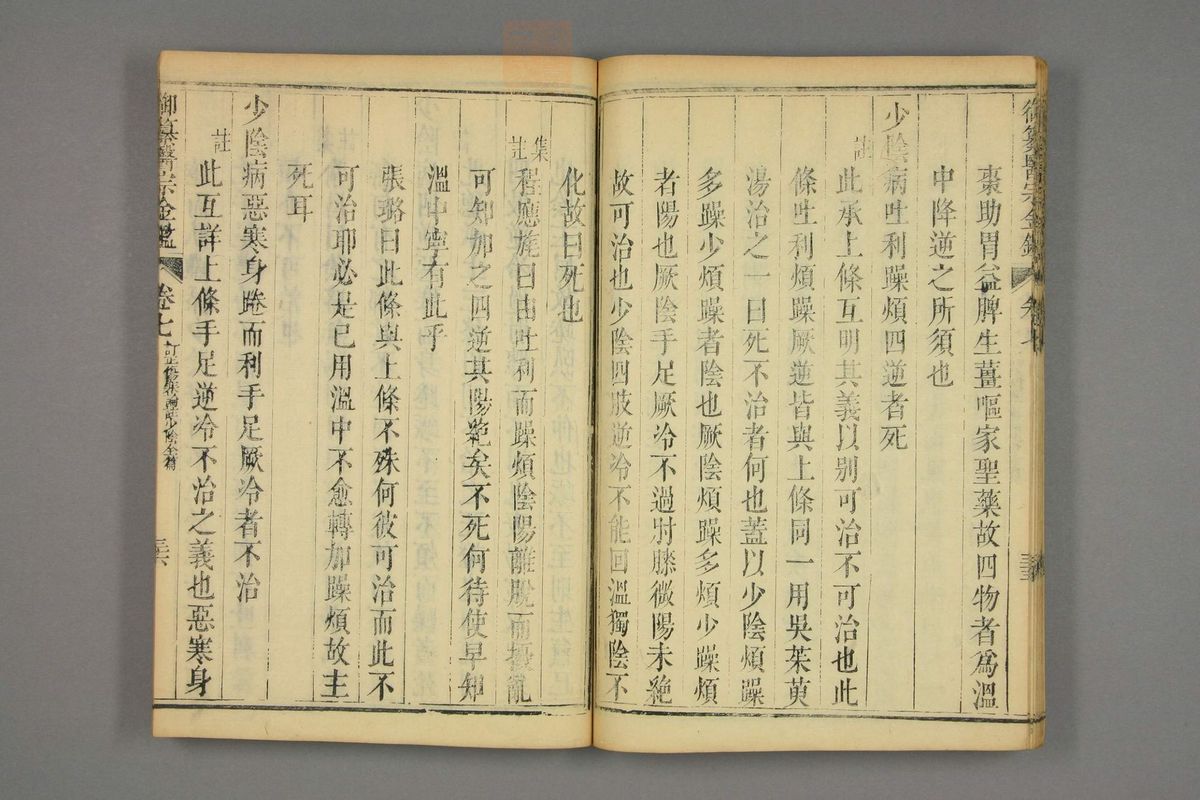 棗助胃益脾生薑嘔家聖藥故四物者爲溫
中降逆之所須也
少陰病吐利躁煩四逆者死
註
此承上條互明其義以别可治不可治也此
條吐利煩躁厥逆皆與上條同一用吳茱萸
湯治之一曰死不治者何也蓋以少陰煩躁
多躁少煩躁者陰也厥陰煩躁多煩少躁煩
者陽也厥陰手足厥冷不過肘膝微陽未絶
故可治也少陰四肢逆冷不能回溫獨陰不
化故曰死也
集註
程應旄曰由吐利而躁煩陰陽離脫而擾亂
可知加之四逆其陽絶矣不死何待使早知
溫中寧有此乎
張璐曰此條與上條不殊何彼可治而此不
可治耶必是已用溫中不愈轉加躁煩故主
死耳
少陰病惡寒身踡而利手足厥冷者不治
註
此互詳上條手足逆冷不治之義也惡寒身
御纂醫宗金鑑
卷七